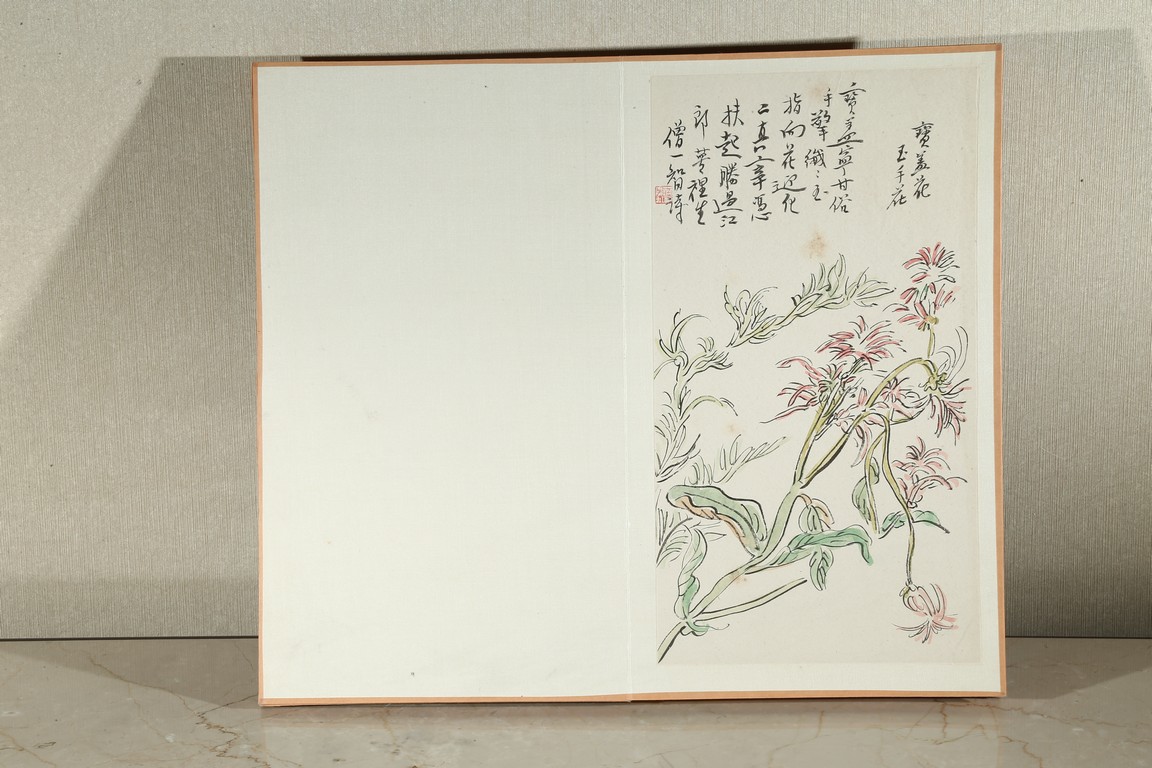 寶蓋花
玉手花
寶蓋寧甘俗
手擎纖〻玉
指向花迎化
二真 宰憑
扶起勝過江
郎夢裡生
僧一智詩